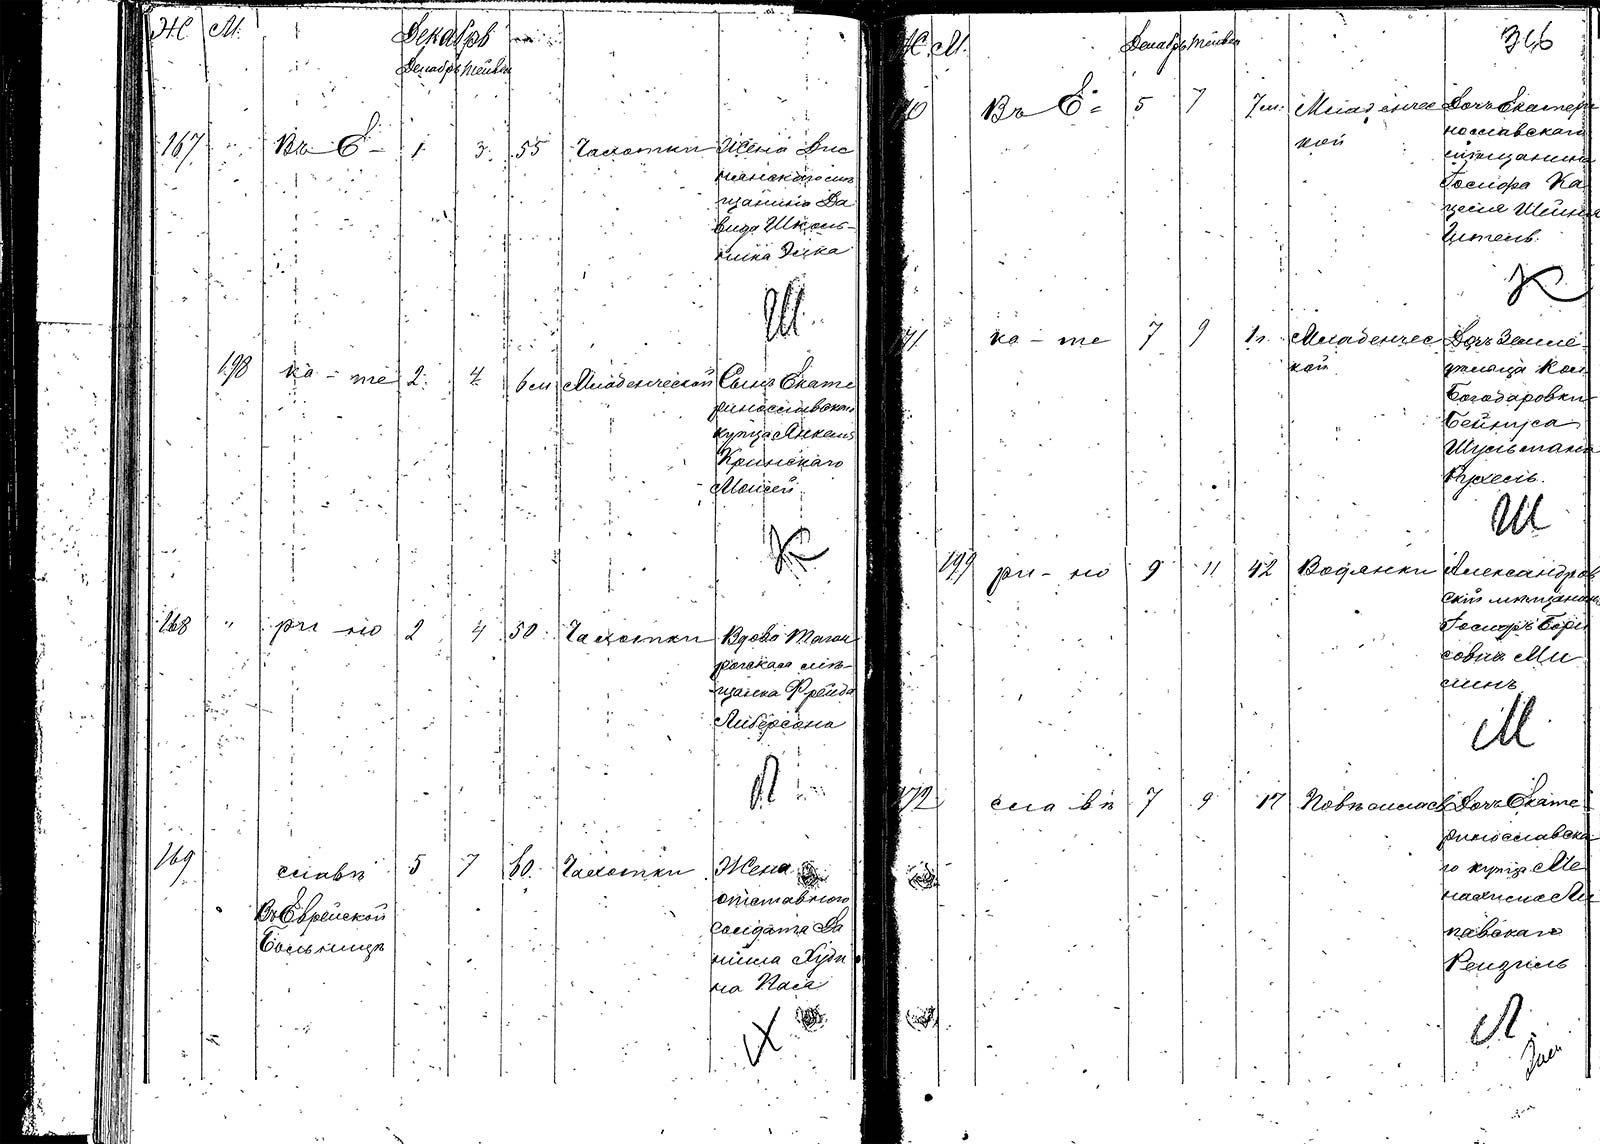 Ж М. Декабрь
Декабрь Тейвес
167 " Въ Е- 1 3 55 Чахотки Жена Дис
ненскаго мѣ
щанина Да
вида Школь-
ника Элка
Ш
198 ка - те 2 4 6 м Младенческой Сынъ Екате
ринославскаго
купца Янкеля
Кринскаго
Моисей
К
168 " ри - но 2 4 50 Чахотки Вдова Таган
рогская мѣ-
щанка Фрейда
Либерсона
Л
169 славѣ 5 7 60 Чахотки Жена
Въ Еврейской отставного
Больницѣ солдата Да
нiила Худи
на Пая
Х
Ж М. Декабрь Тейвес 346
170 Въ Е- 5 7 7 м. Младенчес Дочь Екатери
кой нославскаго
мѣщанина
Іосифа Ка
целя Шейна
К
171 ка - те 7 9 1 г. Младенчес Дочь Земле-
кой дѣльца Кол.
Богодаровки
Бейниса
Шульмана
Рухель.
Ш
199 ри - но 9 11 42 Водянки Александров
скій мѣщанинъ
Іосифъ Бори
совичъ Ми
линъ
М
172 славѣ 7 9 17 Дочь Екате-
ринославска
го купца Ме
нахима Ли
павскаго
Рейзель
Л